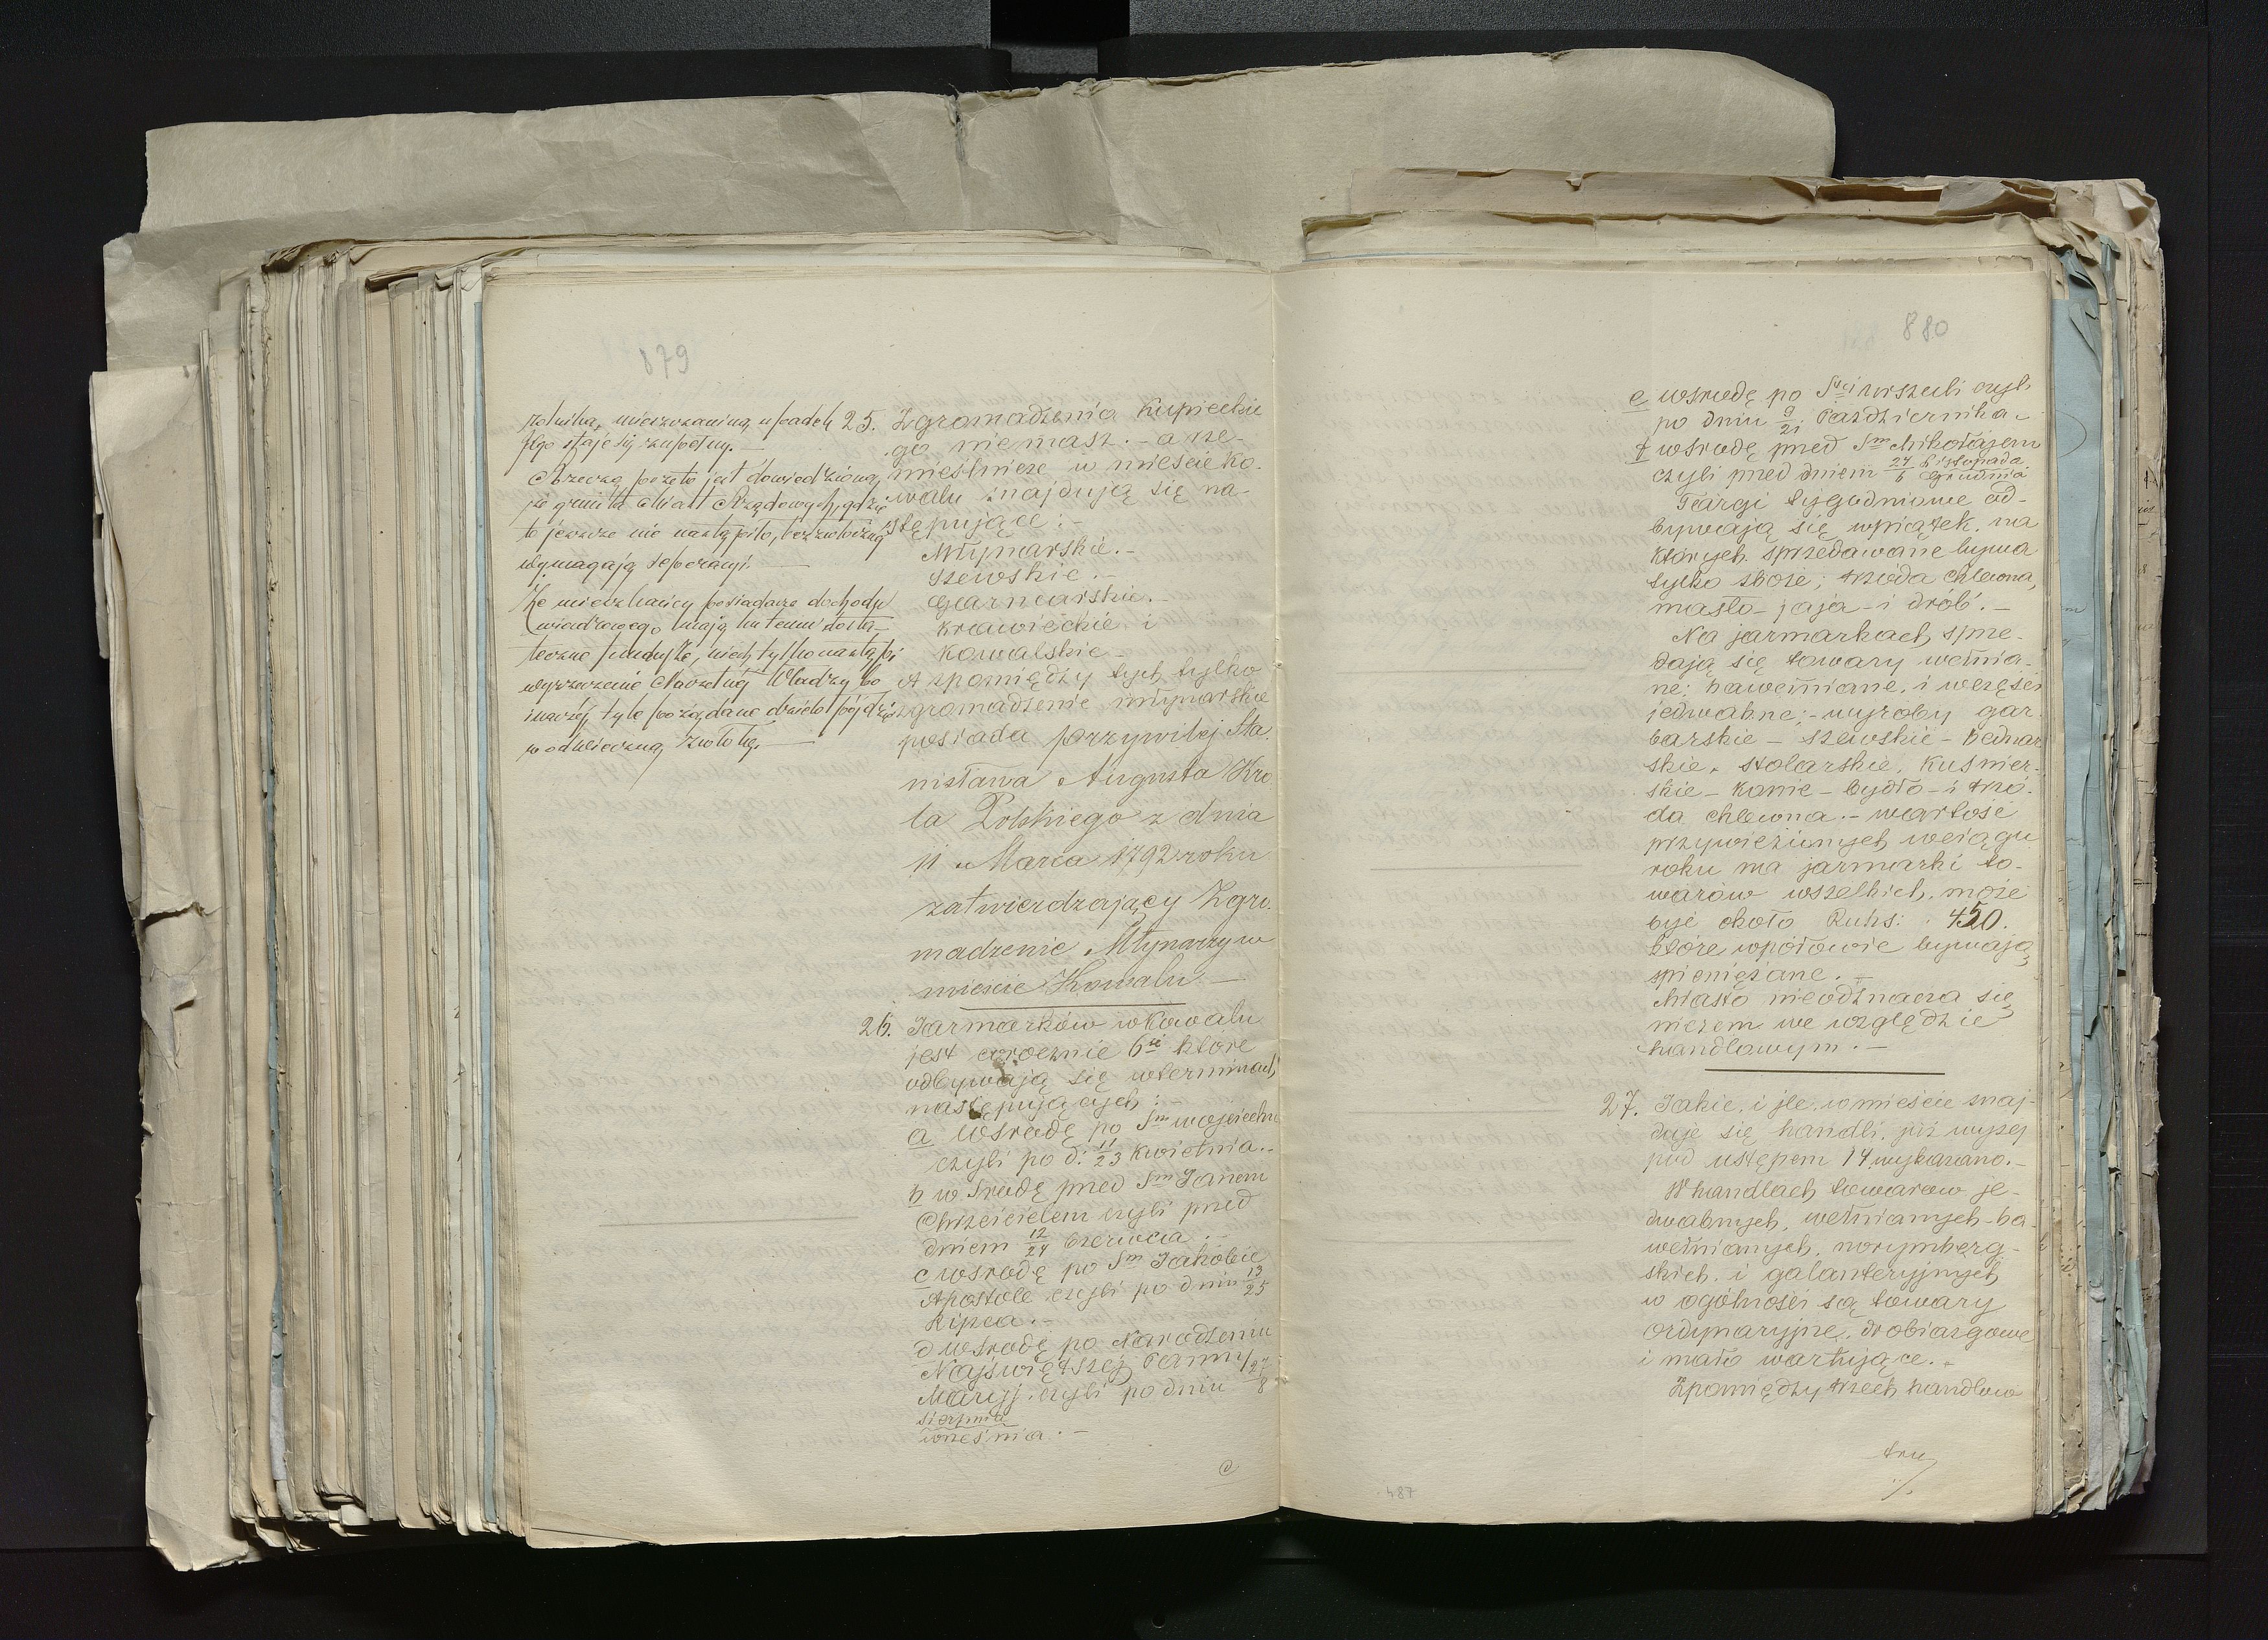 879
rolnika, mieszczanina, upadek
Jego staje się zupełny. —
Rzeczą przeto jest dowiedzioną,
że grunta Miast Rządowych, gdzie
to jeszcze nie nastąpiło, bezzwłocznej
wymagają separacyi. —
Że mieszkańcy posiadacze dochodu
wieczystego, mają ku temu dosta-
teczne fundusze, niech tylko nastąpi
wyrzeczenie Naczelnej Władzy bo
inaczéj, tyle pożądane dzieło pójdzie
w odwieczną zwłokę. —
25. Zgromadzenia Kupieckie
go niemasz. - a rze-
mieślnicze w mieście Ko-
walu znajdują się na-
stępujące: -
Młynarskie. -
Szewskie. -
Garncarskie. -
Krawieckie i
Kowalskie -
A spomiędzy tych tylko
zgromadzenie młynarskie
posiada przywilej Sta
nisława Augusta Kró
la Polskiego z dnia
11 Marca 1792 roku
zatwierdzający Zgro
madzenie Młynarzy w
mieście Kowalu —
26. Jarmarków w Kowalu
jest corocznie 6ść które
odbywają się wterminach
następujących: -
a Wśrodę po Sm Wojciechu
czyli po d: 11/23 Kwietnia. -
b w Środę przed Sm Janem
Chrzcicielem czyli przed
dniem 12/24 Czerwca. -
c wśrodę po Sm Jakobie
Apostole czyli po dniu 13/25
Lipca. -
d wśrodę po Narodzeniu
Najświętszej Panny
Maryj. czyli po dniu 27/8
sierpnia
września. -
e
880
e wśrodę po Stej Urszuli czyli
po dniu 9/21 Października -
f wśrodę przed Sm Mikołajem
czyli przed dniem 24/6 Listopada/Grudnia
Targi tygodniowe od-
bywają się wpiątek, na
których sprzedawane bywa
tylko zboże; trzoda chlewna,
masło - jaja - i drób. -
Na jarmarkach, sprze-
dają się towary wełnia-
ne; bawełniane, i wczęści
jedwabne; - wyroby gar
barskie - szewskie - bednar
skie, stolarskie, kuśnier-
skie - konie - bydło - i trzo-
da chlewna. - wartość
przywiezionych wciągu
roku na jarmarki to-
warów wszelkich, może
być około Rubs: 450.
które wpołowie bywają
spieniężane. -
Miasto nieodznacza się
niczem we względzie
handlowym. -
27. Jakie, i jle, w mieście znaj-
duje się handli, już wyżej
pod ustępem 14 wykazano. -
W handlach towarow je-
dwabnych, wełnianych - ba-
wełnianych, norymberg-
skich, i galanteryjnych
w ogólności są towary
ordynaryjne, drobiazgowe
i mało wartujące. -
Zpomiędzy trzech handlow
487